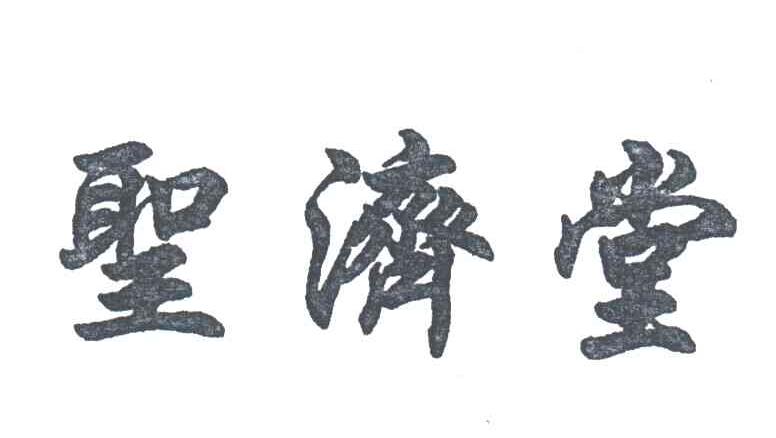 聖濟堂